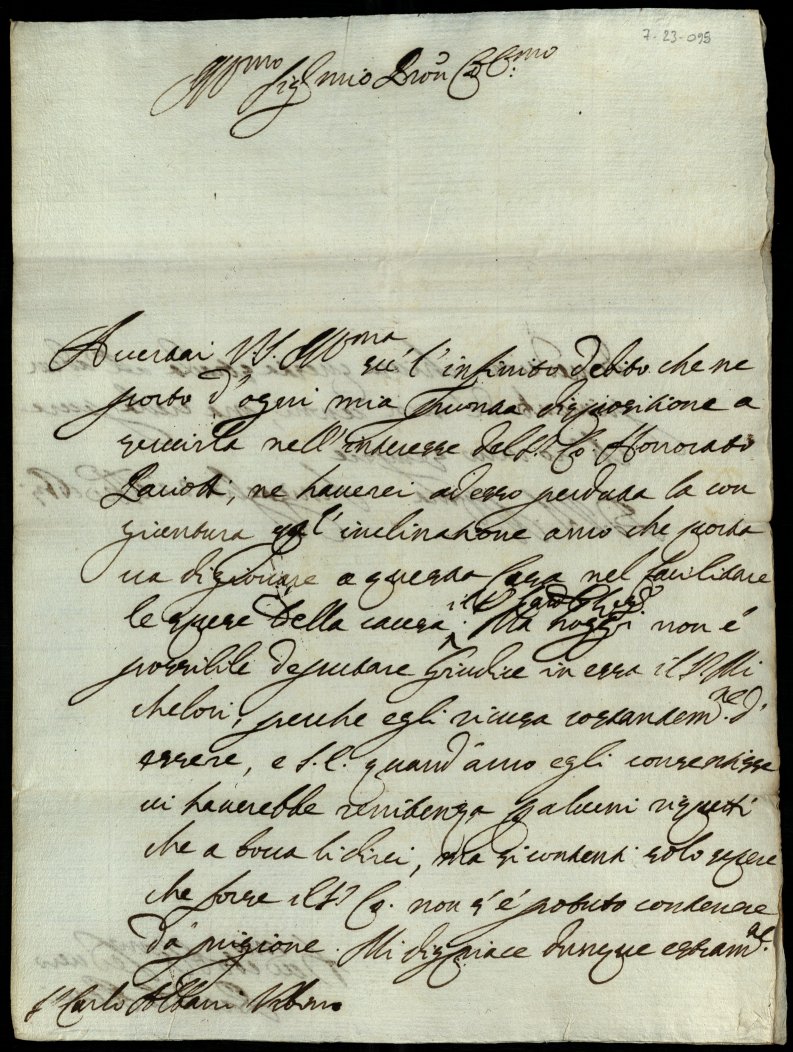 7-23-095
Ill.mo Sig.r mio Pron Col.mo
V.S. Ill.ma l'infinito debito che ne
porto d'ogni mia pronta dispositione a
seruirla nell'interesse del S.r Co. Honorato
Paciotti, ne hauerei adesso perduta la con
giuntura l'inclinatione anco che porta
ua di giouare a questa Casa nel facilitare
le spese della causa. il S.r Card. Ma hoggi non é
possibile deputare Giudice in essa il S.r Mi
chelori, perche egli ricusa constantem.ne d'
essere, e S.E. quand'anco egli consentisse
ui hauerebbe renitenza p alcuni rispetti
che a bocca li direi, ma si contenti solo sapere
che forse il S.r Co. non s'é potuto contenere
dà prigione. Mi dispiace dunque estram.te
S.r Carlo Albani Urbino